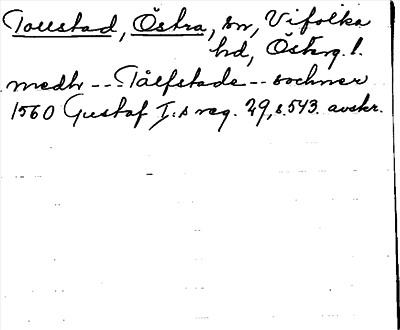 Tollstad, Östra, sn, Vifolka
hd, Österg. l.
medh -- Tålfstade -- sochner
1560 Gustaf I:s reg. 29, s. 543. avskr.